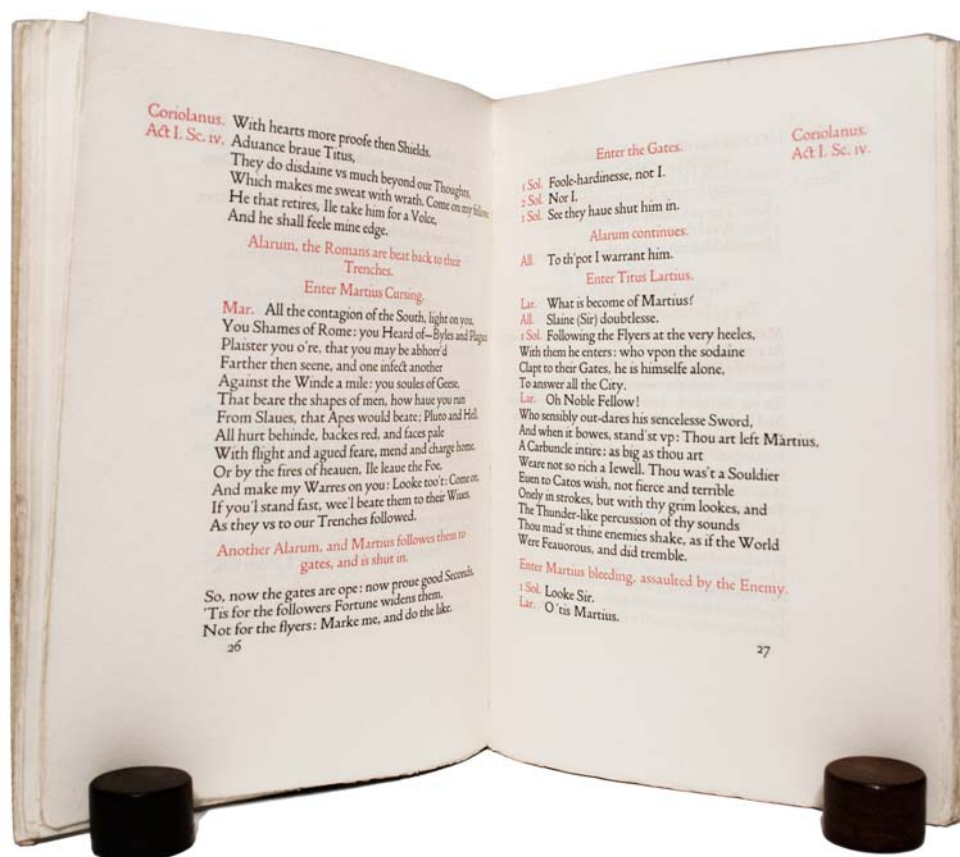 Coriolanus.
Act I. Sc. iv.
With hearts more proofe then Shields.
Aduance braue Titus,
They do disdaine vs much beyond our Thoughts,
Which makes me sweat with wrath. Come on my fellows
He that retires, Ile take him for a Volce,
And he shall feele mine edge.
Alarum, the Romans are beat back to their
Trenches.
Enter Martius Cursing.
Mar. All the contagion of the South, light on you,
You Shames of Rome: you Heard of—Byles and Plagues
Plaister you o're, that you may be abhorr'd
Farther then seene, and one infect another
Against the Winde a mile: you soules of Geese,
That beare the shapes of men, how haue you run
From Slaues, that Apes would beate; Pluto and Hell.
All hurt behinde, backes red, and faces pale
With flight and agued feare, mend and charge home,
Or by the fires of heauen, Ile leaue the Foe,
And make my Warres on you: Looke too't: Come on,
If you'l stand fast, wee'l beate them to their Wiues,
As they vs to our Trenches followed.
Another Alarum, and Martius followes them to
gates, and is shut in.
So, now the gates are ope: now proue good Seconds,
'Tis for the followers Fortune widens them,
Not for the flyers: Marke me, and do the like.
26
Coriolanus.
Act I. Sc. iv.
Enter the Gates.
1 Sol. Foole-hardinesse, not I.
2 Sol. Nor I.
1 Sol. See they haue shut him in.
Alarum continues.
All. To th'pot I warrant him.
Enter Titus Lartius.
Lar. What is become of Martius?
All. Slaine (Sir) doubtlesse.
1 Sol. Following the Flyers at the very heeles,
With them he enters: who vpon the sodaine
Clapt to their Gates, he is himselfe alone,
To answer all the City.
Lar. Oh Noble Fellow!
Who sensibly out-dares his sencelesse Sword,
And when it bowes, stand'st vp: Thou art left Martius,
A Carbuncle intire: as big as thou art
Weare not so rich a Iewell. Thou was't a Souldier
Euen to Catos wish, not fierce and terrible
Onely in strokes, but with thy grim lookes, and
The Thunder-like percussion of thy sounds
Thou mad'st thine enemies shake, as if the World
Were Feauorous, and did tremble.
Enter Martius bleeding, assaulted by the Enemy.
1 Sol. Looke Sir.
Lar. O'tis Martius.
27